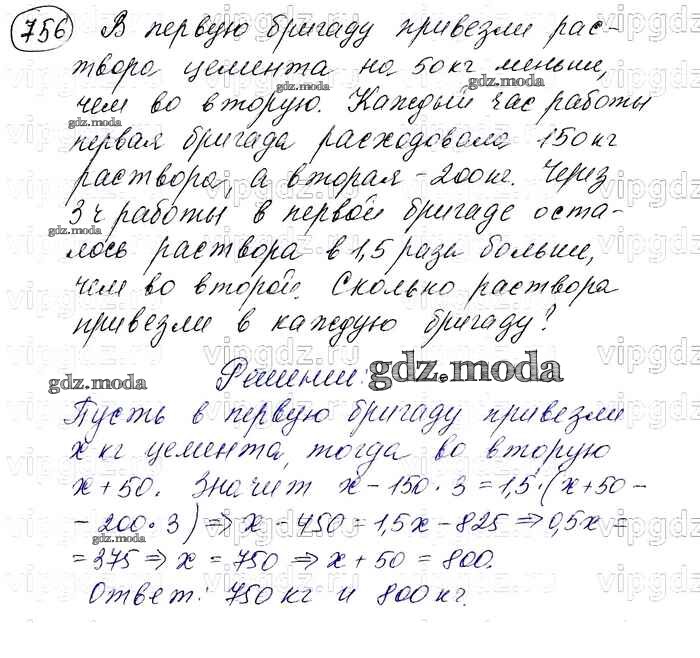 756 В первую бригаду привезли рас-
твора цемента на 50 кг меньше,
чем во вторую. Каждый час работы
первая бригада расходовала 150 кг
раствора, а вторая - 200 кг. Через
3 ч работы в первой бригаде оста-
лось раствора в 1,5 раза больше,
чем во второй. Сколько раствора
привезли в каждую бригаду?
Решение:
Пусть в первую бригаду привезли
x кг цемента, тогда во вторую
x + 50. Значит x - 150 · 3 = 1,5 · (x + 50 -
- 200 · 3) ⇒ x - 450 = 1,5x - 825 ⇒ 0,5x =
= 375 ⇒ x = 750 ⇒ x + 50 = 800.
Ответ: 750 кг и 800 кг.
gdz.moda
gdz.moda
gdz.moda
gdz.moda
gdz.moda
gdz.moda
gdz.moda